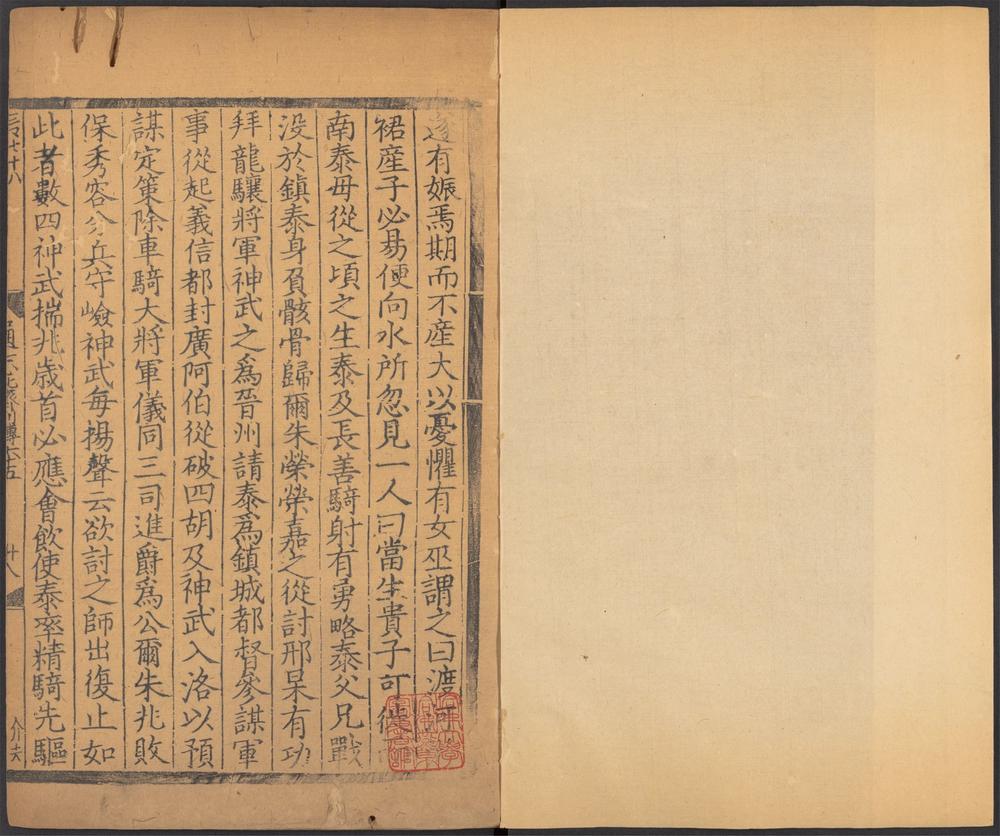 遂有娠焉期而不産大以憂懼有女巫謂之曰渡河
裙産子必易便向水所忽見一人曰當生貴子可徙
南泰母從之頃之生泰及長善騎射有勇略泰父兄戰
没於鎮泰身負骸骨歸爾朱榮榮嘉之從討邢杲有功
拜龍驤將軍神武之爲晉州請泰爲鎮城都督參謀軍
事從起義信都封廣阿伯從破四胡及神武入洛以預
謀定策除車騎大將軍儀同三司進爵爲公爾朱兆敗
保秀容分兵守嶮神武每揚聲云欲討之師出復止如
此者數四神武揣兆歲首必應會飲使泰率精騎先驅
介夫